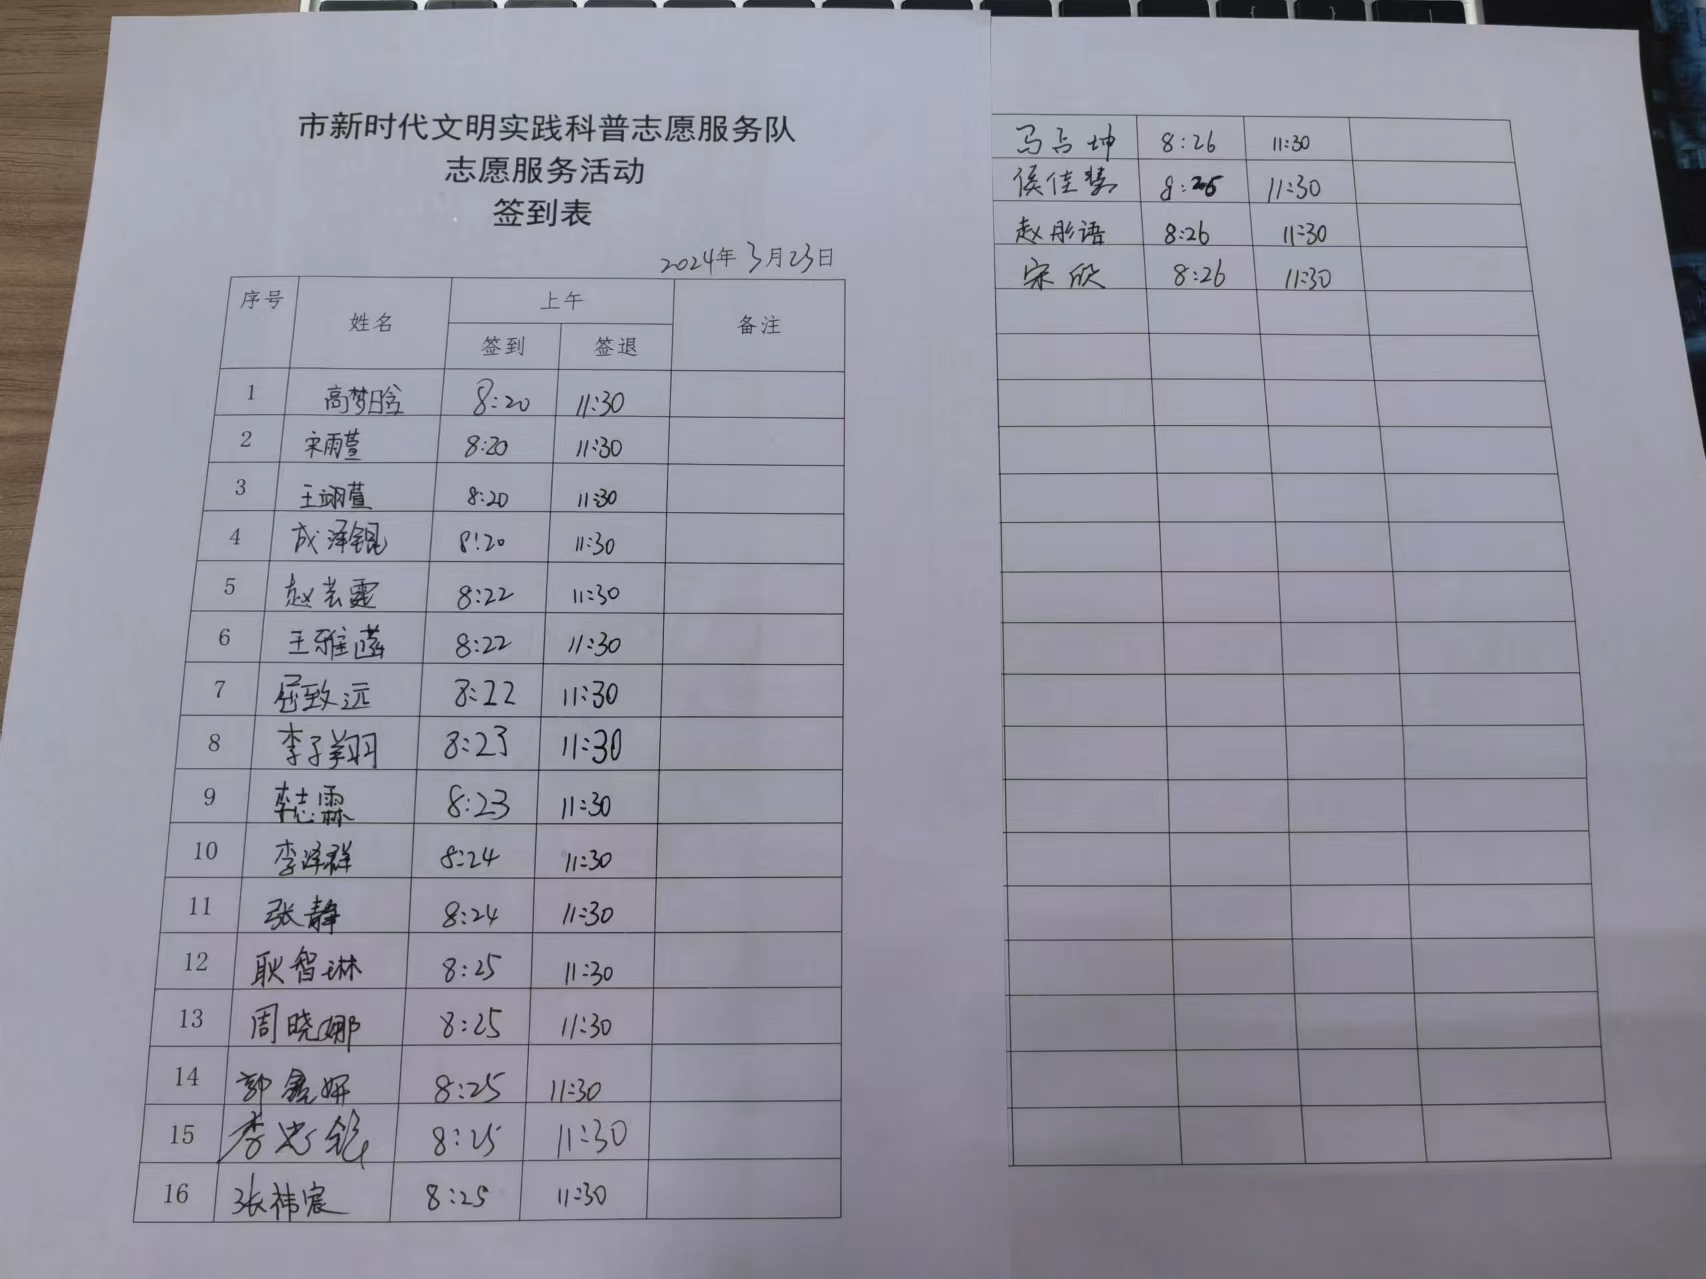 市新时代文明实践科普志愿服务队
志愿服务活动
签到表
2024年3月23日
序号 姓名 上午 备注
签到 签退
1 高梦晗 8:20 11:30
2 宋雨萱 8:20 11:30
3 王翊萱 8:20 11:30
4 成泽锟 8:20 11:30
5 赵芸霆 8:22 11:30
6 王雅 8:22 11:30
7 屈致远 8:22 11:30
8 李子翔 8:23 11:30
9 李志霖 8:23 11:30
10 李泽群 8:24 11:30
11 张静 8:24 11:30
12 耿智琳 8:25 11:30
13 周晓娜 8:25 11:30
14 郭鑫妍 8:25 11:30
15 李忠铭 8:25 11:30
16 张祎宸 8:25 11:30
马占坤 8:26 11:30
侯佳慧 8:26 11:30
赵彤语 8:26 11:30
宋欣 8:26 11:30